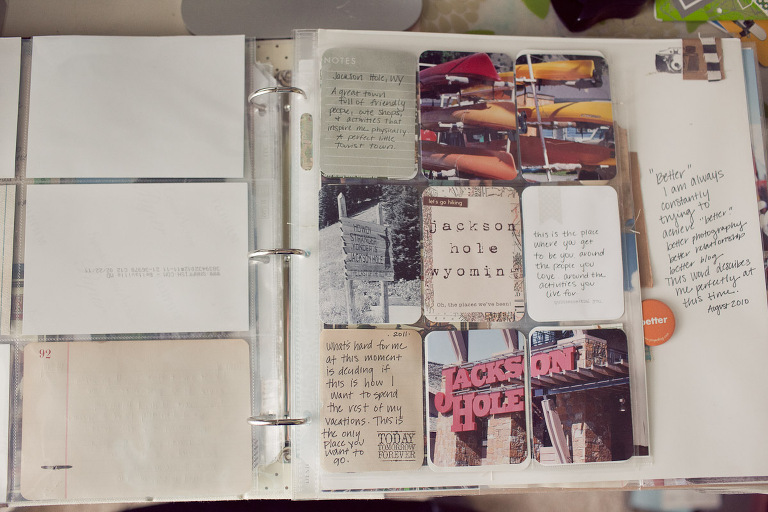 NOTES
Jackson Hole, WY
A great town
full of friendly
people, cute shops,
& activities that
inspire me physically
A perfect little
tourist town.
HOWDY
STRANGER
YONDER IS
JACKSON HOLE
let's go hiking
jackson
hole
wyoming
Oh, the places we've been!
this is the place
where you get
to be you around
the people you
love around the
activities you
live for.
2011
What's hard for me
at this moment
is deciding if
this is how I
want to spend
the rest of my
vacations. This is
the only
place you
want to
go.
TODAY
TOMORROW
FOREVER
JACKSON
HOLE
92
"Better"
I am always
constantly
trying to
achieve "better"
better photography
better relationship
better blog
This word describes
me perfectly at
this time.
August 2010
better